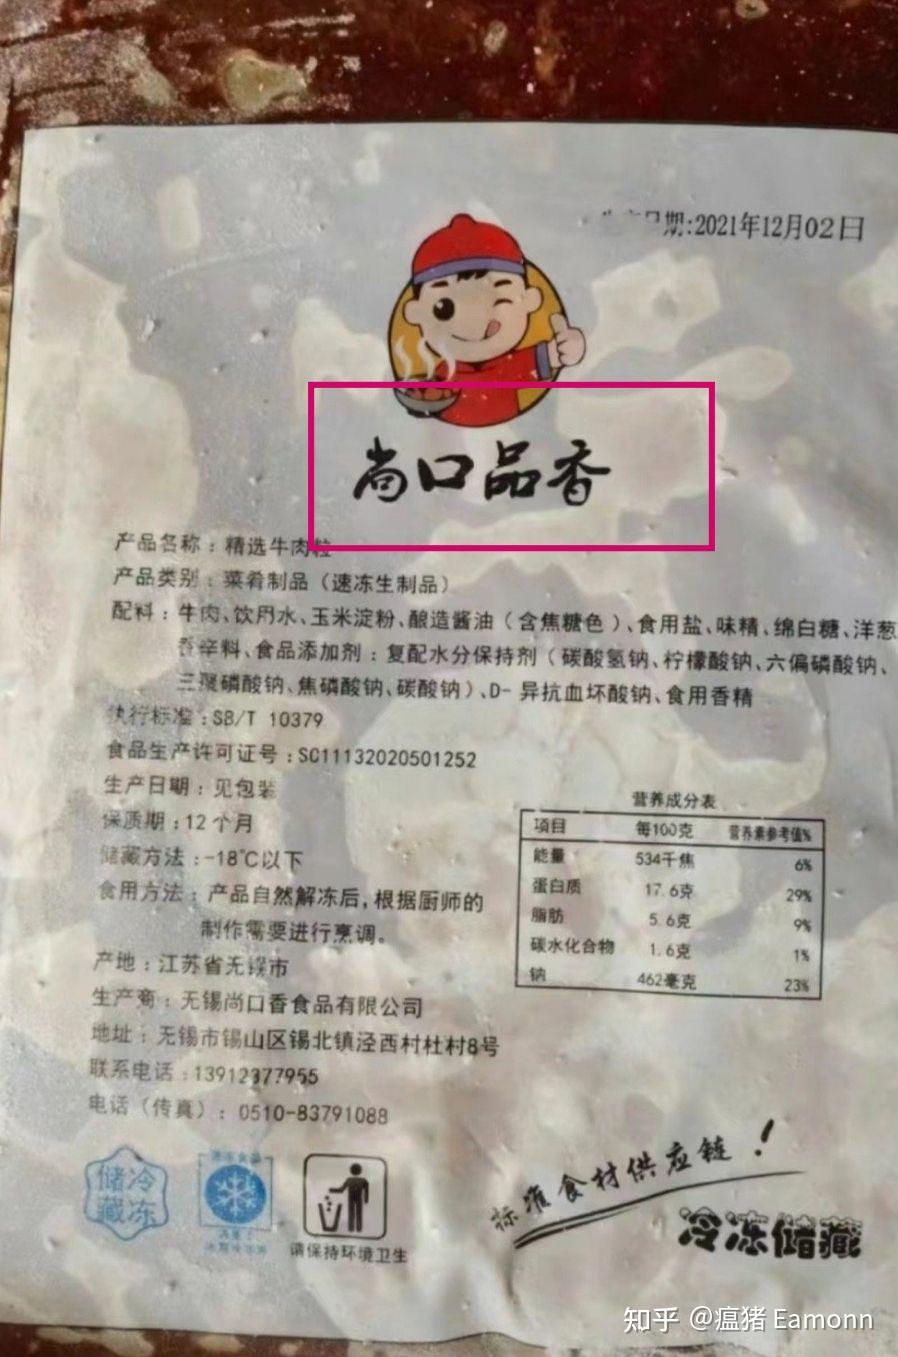 生产日期:2021年12月02日
尚口品香
产品名称：精选牛肉粒
产品类别：菜肴制品（速冻生制品）
配料：牛肉、饮用水、玉米淀粉、酿造酱油（含焦糖色）、食用盐、味精、绵白糖、洋葱
香辛料、食品添加剂：复配水分保持剂（碳酸氢钠、柠檬酸钠、六偏磷酸钠、
三聚磷酸钠、焦磷酸钠、碳酸钠）、D-异抗血坏酸钠、食用香精
执行标准：SB/T 10379
食品生产许可证号：SC11132020501252
生产日期：见包装
保质期：12个月
储藏方法：-18℃以下
食用方法：产品自然解冻后，根据厨师的
制作需要进行烹调。
产地：江苏省无锡市
生产商：无锡尚口香食品有限公司
地址：无锡市锡山区锡北镇泾西村杜村8号
联系电话：13912377955
电话（传真）：0510-83791088
营养成分表
项目 每100克 营养素参考值%
能量 534千焦 6%
蛋白质 17.6克 29%
脂肪 5.6克 9%
碳水化合物 1.6克 1%
钠 462毫克 23%
储冷
藏冻
速冻食品
请保持环境卫生
标准食材供应链！
冷冻储藏
知乎 @瘟猪 Eamonn